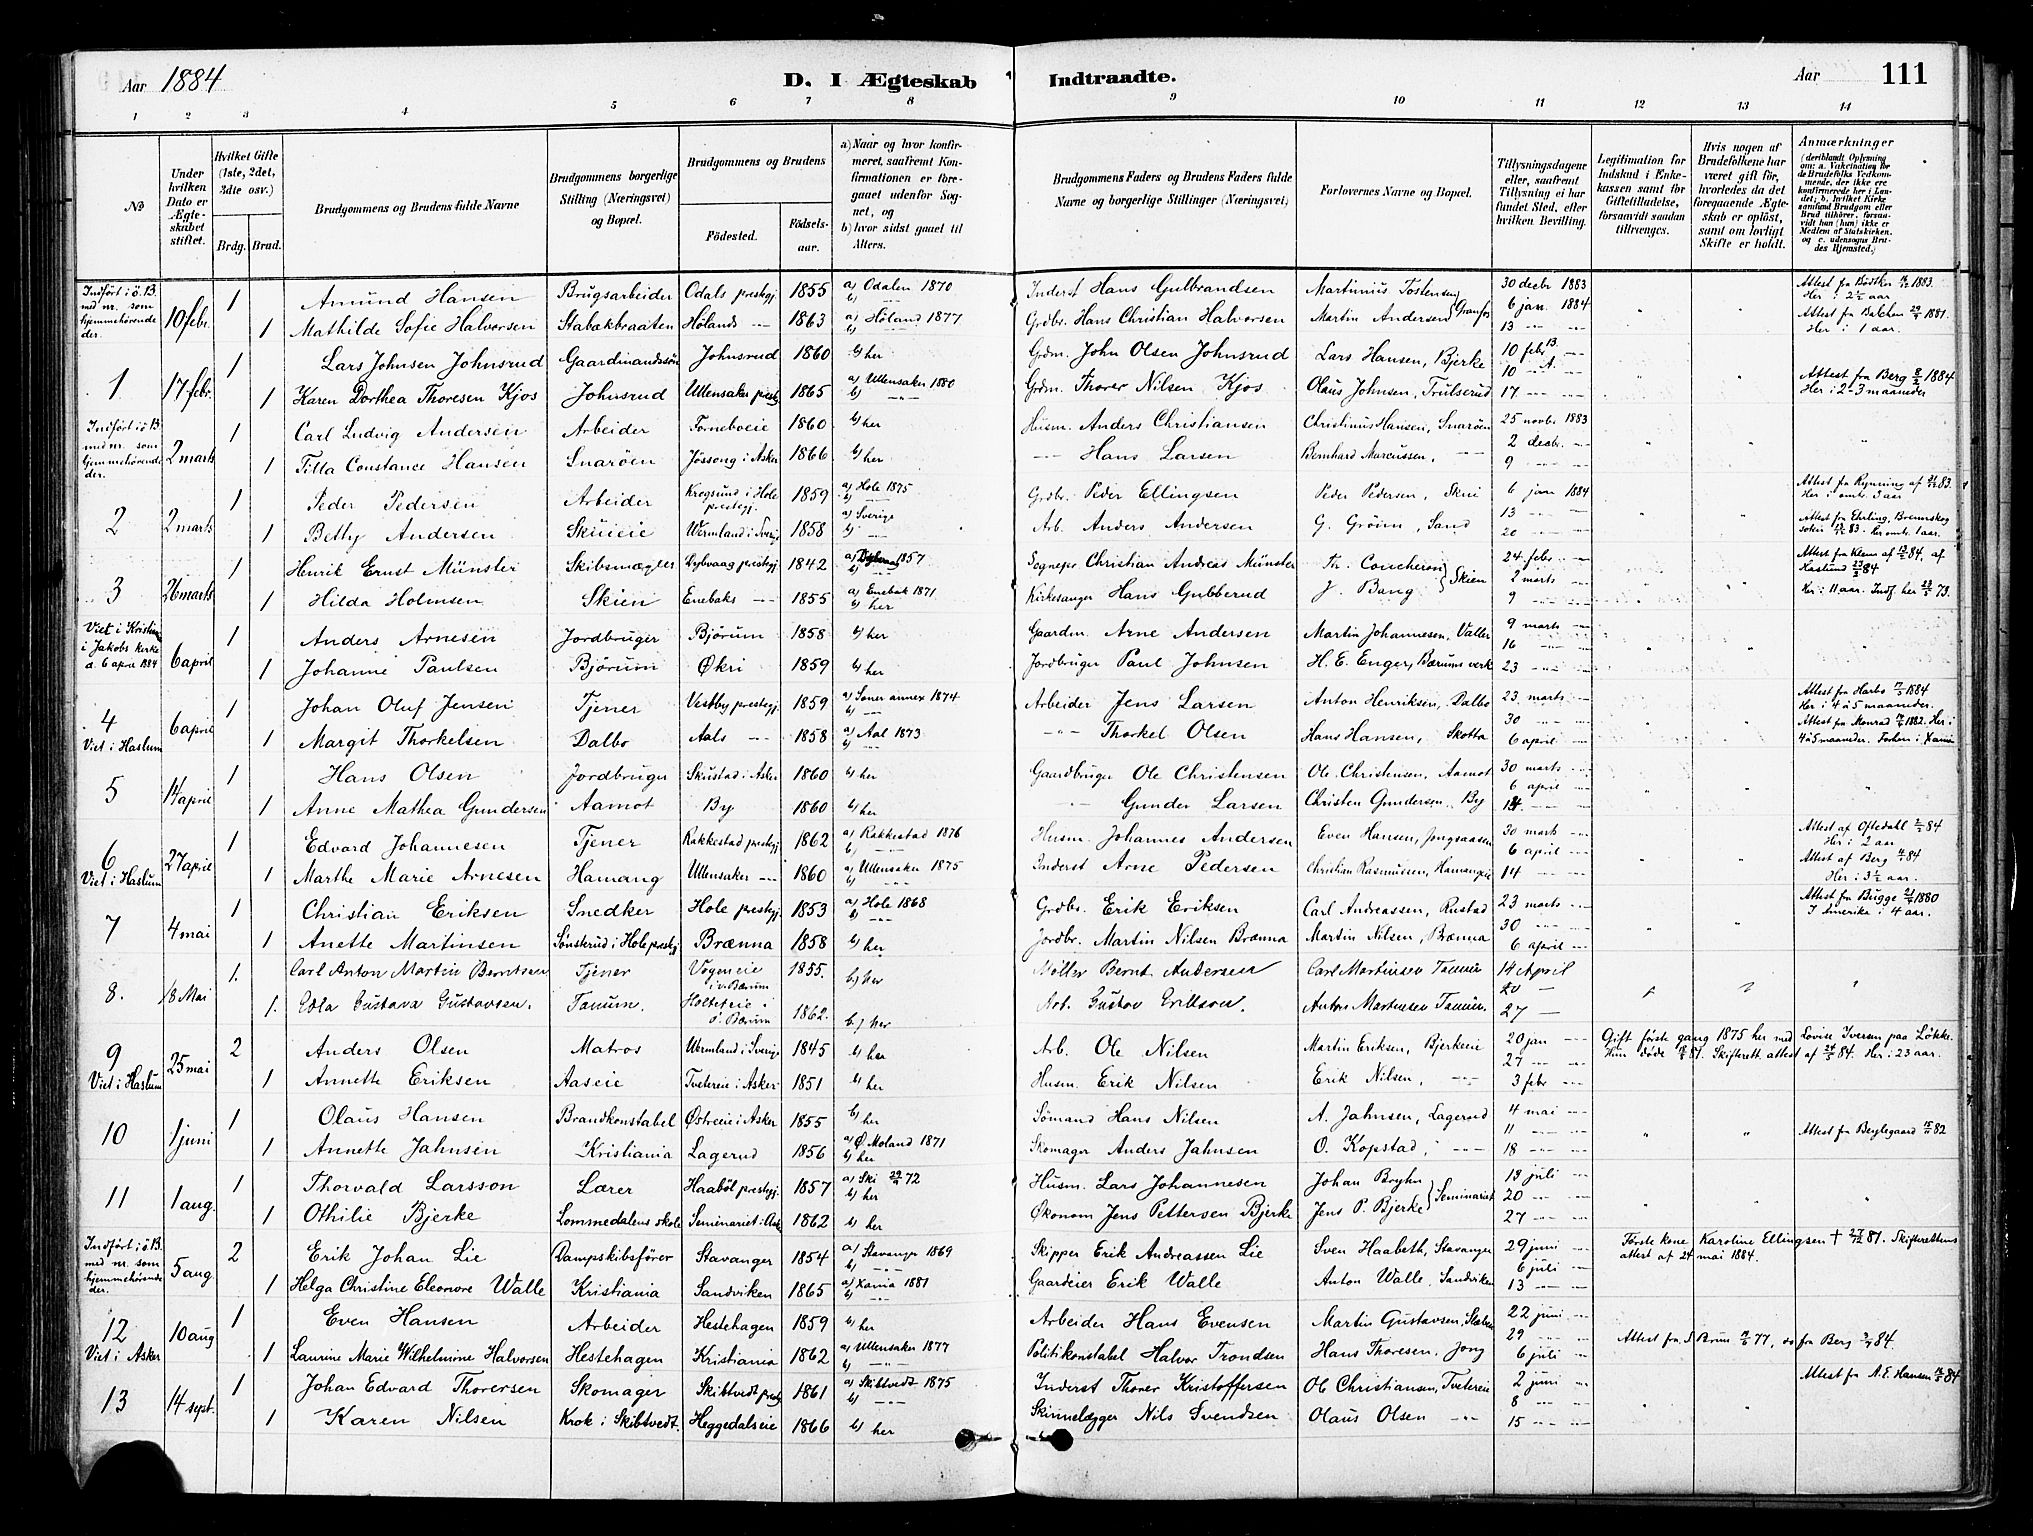 Aar 1884
D. I Ægteskab Indtraadte.
Aar 111
1 2 3 4 5 6 7 8 9 10 11 12 13 14
No
Under hvilken Dato er Ægteskabet stiftet.
Hvilket Gifte (1ste, 2det, 3die osv.)
Brdg. Brud.
Brudgommens og Brudens fulde Navne
Brudgommens borgerlige Stilling (Næringsvei) og Bopæl.
Brudgommens og Brudens
Fødested. Fødselsaar.
a) Naar og hvor konfirmeret, saafremt Konfirmationen er foregaaet udenfor Sognet, og
b) hvor sidst gaaet til Alters.
Brudgommens Faders og Brudens Faders fulde Navne og borgerlige Stillinger (Næringsvei)
Forlovernes Navne og Bopæl.
Tillysningsdagene eller, saafremt Tillysning ei har fundet Sted, efter hvilken Bevilling.
Legitimation for Indskud i Enkekassen samt for Giftetilladelse, forsaavidt saadan tiltrænges.
Hvis nogen af Brudefolkene har været gift før, hvorledes da det foregaaende Ægteskab er opløst, samt om lovligt Skifte er holdt.
Anmærkninger
(deriblandt Oplysning om: a. Vakcination for de Brudefolks Vedkommende, der ikke ere konfirmerede her i Landet; b. hvilket Kirkesamfund Brudgom eller Brud tilhører, forsaavidt han (hun) ikke er Medlem af Statskirken, og c. udensogns Brudes Hjemsted.)
Indført i ö. B. med nr. som hjemmehørende der. 10 febr. 1 Amund Hansen Brugsarbeider Odals prestegj. 1855 a) Odalen 1870 b) Inderst Hans Gulbrandsen Martinius Tostensen 30 decbr 1883 Her i 2½ aar
1 Mathilde Sofie Halvorsen Stabakbraaten Hølands 1863 a) Høland 1877 Grdbr. Hans Christian Halvorsen Martin Andersen 6 jan. 1884 13 Her i 1 aar.
1 17 febr. 1 Lars Johnsen Johnsrud Gaardmandssøn Johnsrud 1860 b) her Grdm. John Olsen Johnsrud Lars Hansen, Bjerke 10 febr
1 Karen Dorthea Thoresen Kjos Johnsrud Ullensaker prestegj 1865 a) Ullensaker 1880 b) Grdm. Thorer Nilsen Kjos Olaus Johnsen, Trulserud 17 Attest fra Berg 1884 Her i 2-3 maaneder
Indført i ö. B. med nr. som hjemmehørende der. 2 marts 1 Carl Ludvig Andersen Arbeider Forneboeie 1860 b) her Husm. Anders Christiansen Christinus Hansen, Snarøen 25 novbr. 1883
1 Tilla Constance Hansen Snarøen Jøssong i Asker 1866 b) her Hans Larsen Bernhard Marcussen, 2 decbr. 9
2 2 marts 1 Peder Pedersen Arbeider Krogsund i Hole prestegj. 1859 a) Hole 1875 b) Grdbr. Peder Ellingsen Peder Pedersen, Skui 6 jan 1884 Her i omtr. 3 aar
1 Betty Andersen Skuieie Wermland i Sverige 1858 a) Sverige b) Arb. Anders Andersen G. Grøim, Sand 13 20 Her omtr. 1 aar.
3 26 marts 1 Henrik Ernst Münster Skibsmægler Dybvaag prestegj. 1842 a) Dybvaag 1857 b) Sognepr. Christian Andreas Münster Th. Coucheron 24 febr. Attest fra Klem af
1 Hilda Holmsen Skien Enebaks 1855 a) Enebak 1871 b) her Kirkesanger Hans Gubberud J. Bang Skien 2 marts 9 Her i 11 aar. Indf. her 73.
Viet i Kristiania i Jakobs kirke d. 6 april 1884 6 april 1 Anders Arnesen Jordbruger Bjørum 1858 b) her Gaardm. Arne Andersen Martin Johannesen, Valler 9 marts
1 Johanne Paulsen Bjørum Økri 1859 b) her Jordbruger Paul Johnsen H. E. Enger, Bærums verk 16 23
4 Viet i Haslum 6 april 1 Johan Oluf Jensen Tjener Vestby prestegj. 1859 a) Soner annex 1874 b) Arbeider Jens Larsen Anton Henriksen, Dalbo 23 marts 30 Her i 4 à 5 maaneder.
1 Margit Thorkelsen Dalbo Aals 1858 a) Aal 1873 b) Thorkel Olsen Hans Hansen, Skotta 6 april Attest fra Monrad 1882. Her i 4 à 5 maaneder. Forhen i Xania
5 14 april 1 Hans Olsen Jordbruger Skustad i Asker 1860 b) her Gaardbruger Ole Christensen Ole Christensen, Aamot 30 marts 6 april
1 Anne Mathea Gundersen Aamot By 1860 b) her Gunder Larsen Christen Gundersen, By 14
6 Viet i Haslum 27 april 1 Edvard Johannesen Tjener Rakkestad prestegj 1862 a) Rakkestad 1876 b) Husm. Johannes Andersen Even Hansen, Jongsaasen 30 marts 6 april Attest af Oftedahl 84 Her i 2 aar
1 Marthe Marie Arnesen Hamang Ullensaker 1860 a) Ullensaker 1875 b) Inderst Arne Pedersen Christian Rasmussen, Hamangeie 14 Attest af Berg 84 Her i 3½ aar.
7 4 mai 1 Christian Eriksen Snedker Hole prestegj. 1853 a) Hole 1868 b) Grdbr. Erik Eriksen Carl Andreassen, Rustad 23 marts 30 Attest fra Bugge 1880 I Amerika i 4 aar.
1 Anette Martinsen Sønsterud i Hole prestegj Brænna 1858 b) her Jordbr. Martin Nilsen Brænna Martin Nilsen, Brænna 6 april
8. 18 Mai 1. Carl Anton Martin Berntsen Tjener Vogneie i v. Bærum 1855. b) her Møller Bernt Andersen Carl Martinsen Tanum 14 April 20
1. Edla Gustava Gustavsen. Tanum. Holteteie i ö. Bærum 1862. b.) her Arb. Gustav Erikson. Anton Martinsen Tanum. 27
9 Viet i Haslum 25 mai 2 Anders Olsen Matros Wermland i Sverige 1845 b) her Arb. Ole Nilsen Martin Eriksen, Bjerkeie 20 jan 27 Gift første gang 1875 her med Lovise Iversen paa Løkke. Hun døde 81. Skifteret. attest af 84. Her i 23 aar.
1 Annette Eriksen Aaseie Tvetereie i Asker 1851 b) her Husm. Erik Nilsen Erik Nilsen, 3 febr
10 1 juni 1 Olaus Hansen Brandkonstabel Østreeie i Asker 1855 b) her Sømand Hans Nilsen A. Jahnsen, Lagerud 4 mai 11
1 Annette Jahnsen Kristiania Lagerud 1856 a) Ø. Moland 1871 b) her Skomager Anders Jahnsen O. Kopstad, 18 Attest fra Beylegaard 82
11 1 aug. 1 Thorvald Larsson Lærer Haabøl prestegj. 1857 a) Ski 72 b) her Husm. Lars Johannesen Johan Bryhn 13 juli 20
1 Othilie Bjerke Lommedalens skole Seminariet i Asker 1862 b) her Økonom Jens Pettersen Bjerke Jens P. Bjerke Seminariet 27
Indført i ö. B. med nr. som hjemmehørende der. 5 aug. 2 Erik Johan Lie Dampskibsfører Stavanger 1854 a) Stavanger 1869 b) Skipper Erik Andreassen Lie Sven Haabeth, Stavanger 29 juni 6 juli Første kone Karoline Ellingsen † 81. Skifterettens attest af 24 mai 1884.
1 Helga Christine Eleonore Walle Kristiania Sandviken 1865 a) Xania 1881 b) Gaardeier Erik Walle Anton Walle, Sandviken 13
12 Viet i Asker 10 aug 1 Even Hansen Arbeider Hestehagen 1859 b) her Arbeider Hans Evensen Martin Gustavsen, 22 juni 29
1 Laurine Marie Wilhelmine Halvorsen Hestehagen Kristiania 1862 a) Ullensaker 1877 b) Politikonstabel Halvor Trondsen Hans Thoresen, Jong 6 juli Attest fra S Bruun 77, og fra Berg 84.
13 14 sept. 1 Johan Edvard Thorersen Skomager Skibtvedt prestegj 1861 a) Skibtvedt 1875 b) Inderst Thorer Kristoffersen Ole Christiansen, Tvetereie 2 juni 8 Attest fra A. E. Hansen 84
1 Karen Nilsen Krok i Skibtvedt. Heggedalseie 1866 b) her Skinnelægger Nils Svendsen Olaus Olsen 15